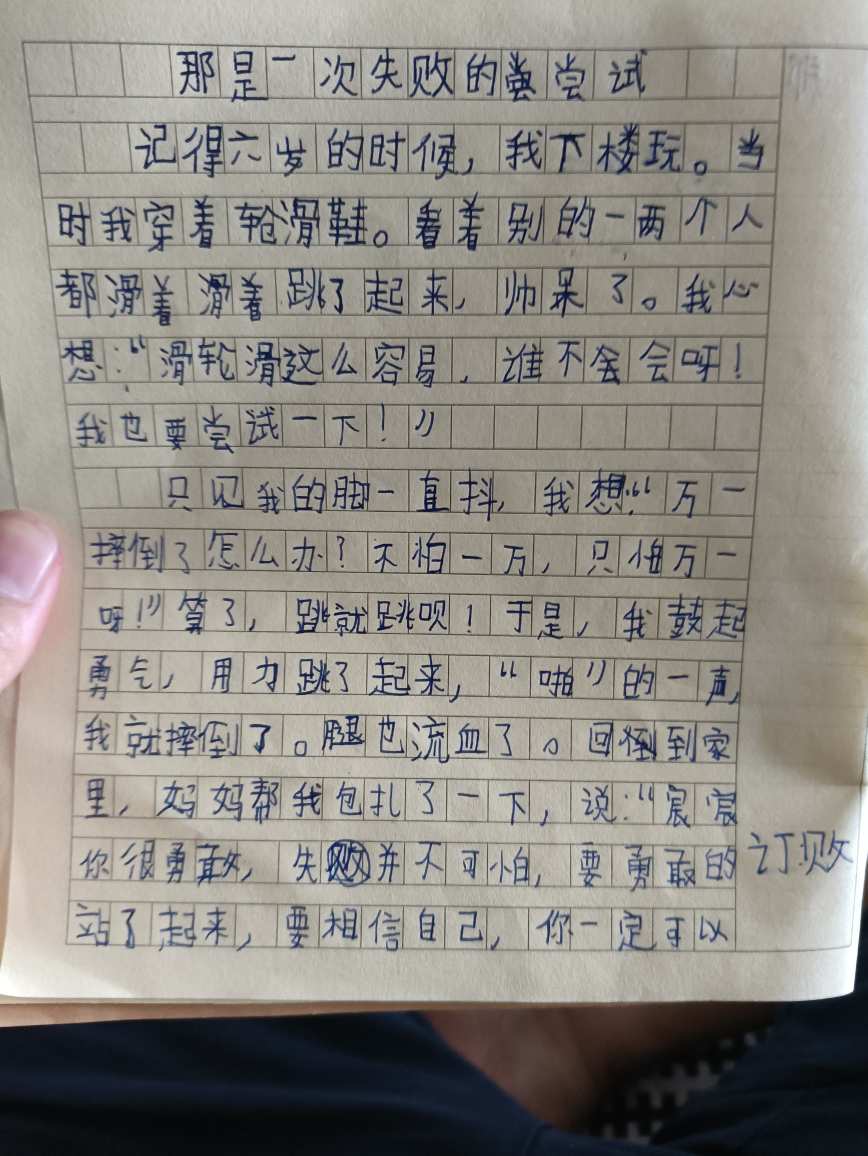 那是一次失败的尝尝试
记得六岁的时候，我下楼玩。当
时我穿着轮滑鞋。看着别的一两个人
都滑着滑着跳了起来，帅呆了。我心
想：“滑轮滑这么容易，谁不会会呀！
我也要尝试一下！”
只见我的脚一直抖，我想：“万一
摔倒了怎么办？不怕一万，只怕万一
呀！”算了，跳就跳呗！于是，我鼓起
勇气，用力跳了起来，“啪”的一声，
我就摔倒了。腿也流血了。回倒到家
里，妈妈帮我包扎了一下，说：“宸宸
你很勇敢，失败并不可怕，要勇敢的
订：败
站了起来，要相信自己，你一定可以